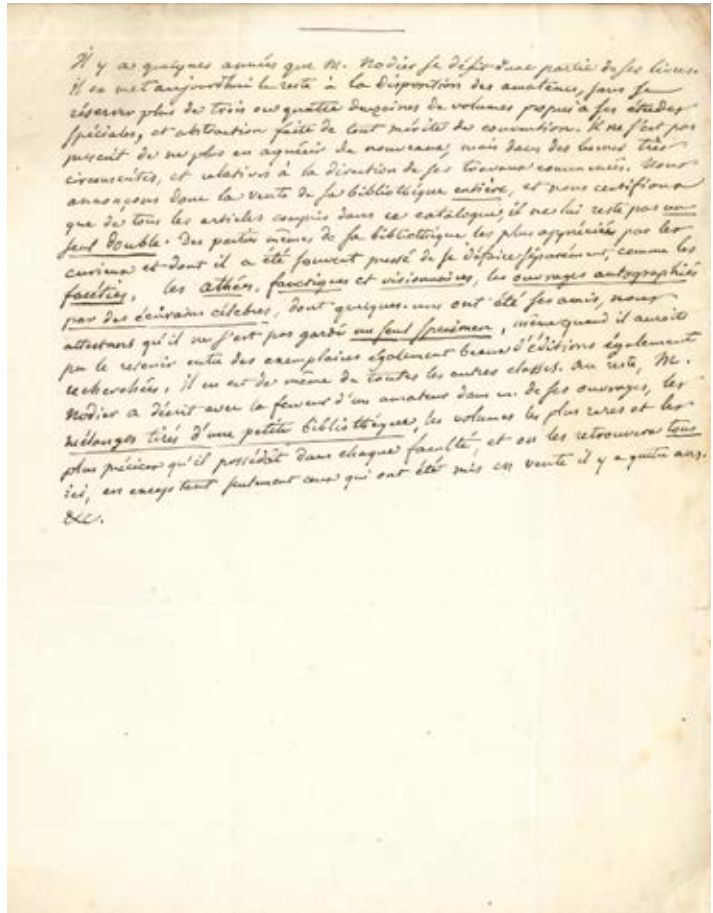 Il y a quelques années que M. Nodier se défit d'une partie de ses livres.
il en met aujourdhui le reste à la disposition des amateurs, sans se
réserver plus de trois ou quatre douzaines de volumes propres à ses études
spéciales, et abstraction faite de tout mérite de convention. Il ne s'est pas
prescrit de ne plus en aquérir de nouveaux, mais dans des bornes très
circonscrites, et relatives à la direction de ses travaux commencés. Nous
annonçons donc la vente de sa bibliothèque entière, et nous certifions
que de tous les articles compris dans ce catalogue, il ne lui reste pas un
seul double. Des parties mêmes de sa bibliothèque les plus appréciées par les
curieux et dont il a été souvent pressé de se défaire séparément, comme les
facéties, les athées, fanatiques et visionnaires, les ouvrages autographiés
par des écrivains célèbres, dont quelques-uns ont été ses amis, nous
attestons qu'il ne s'est pas gardé un seul specimen, même quand il auroit
pu le retenir entre des exemplaires également beaux d'éditions également
recherchées. il en est de même de toutes les autres classes. Au reste, M.
Nodier a décrit avec la ferveur d'un amateur dans un de ses ouvrages, les
mélanges tirés d'une petite bibliothèque, les volumes les plus rares et les
plus précieux qu'il possédât dans chaque faculté, et on les retrouvera tous
ici, en exceptant seulement ceux qui ont été mis en vente il y a quatre ans.
&c.